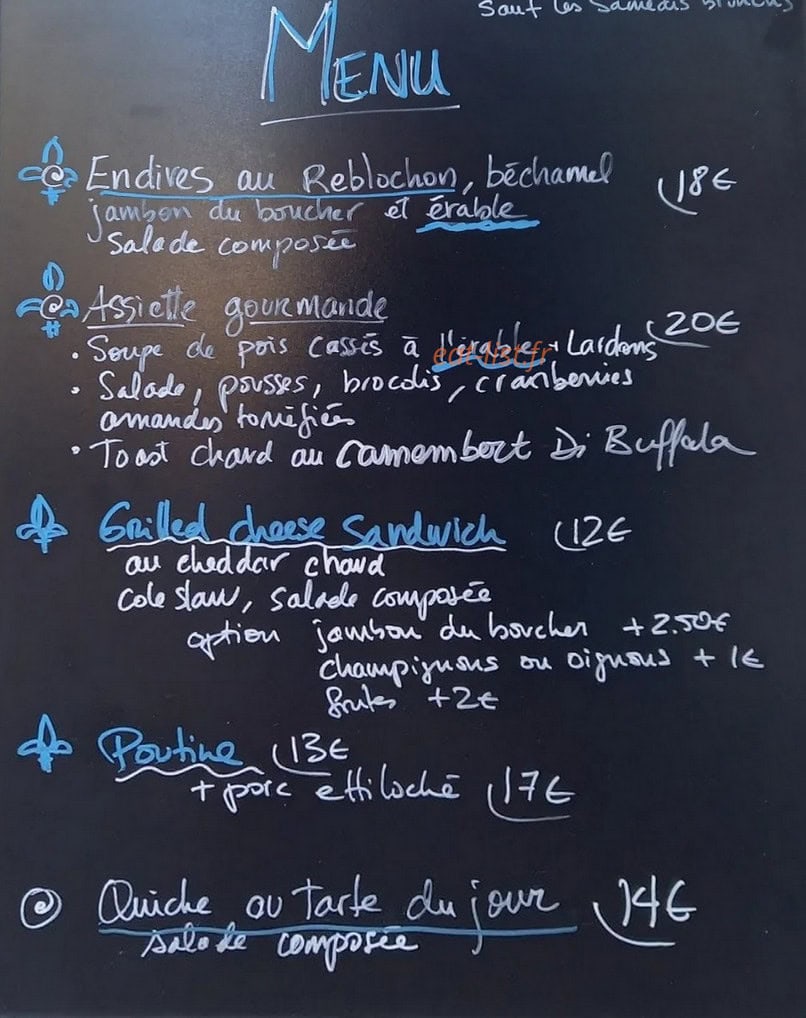 Sauf les Samedis brunchs
MENU
Endives au Reblochon, béchamel 18€
jambon du boucher et érable
Salade composée
Assiette gourmande
20€
• Soupe de pois cassés à l'érable + Lardons
eat-list.fr
• Salade, pousses, brocolis, cranberries
amandes torréfiées
• Toast chard au Camembert Di Buffala
Grilled cheese Sandwich 12€
au cheddar chaud
cole slaw, salade composée
option jambon du boucher +2.50€
champignons ou oignons + 1€
frites +2€
Poutine 13€
+ porc effiloché 17€
Quiche ou Tarte du jour 14€
salade composée